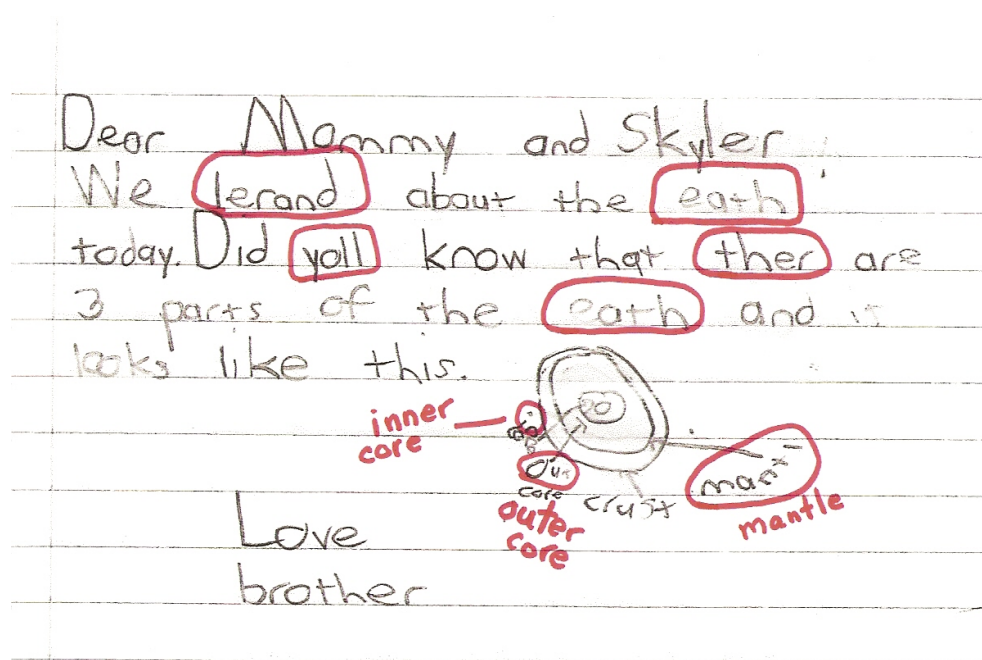 Dear Mommy and Skyler
We lerand about the eath
today. Did yoll know that ther are
3 parts of the eath and it
looks like this.
inner
core
Out
core
crust
mant
outer
core
mantle
Love
brother